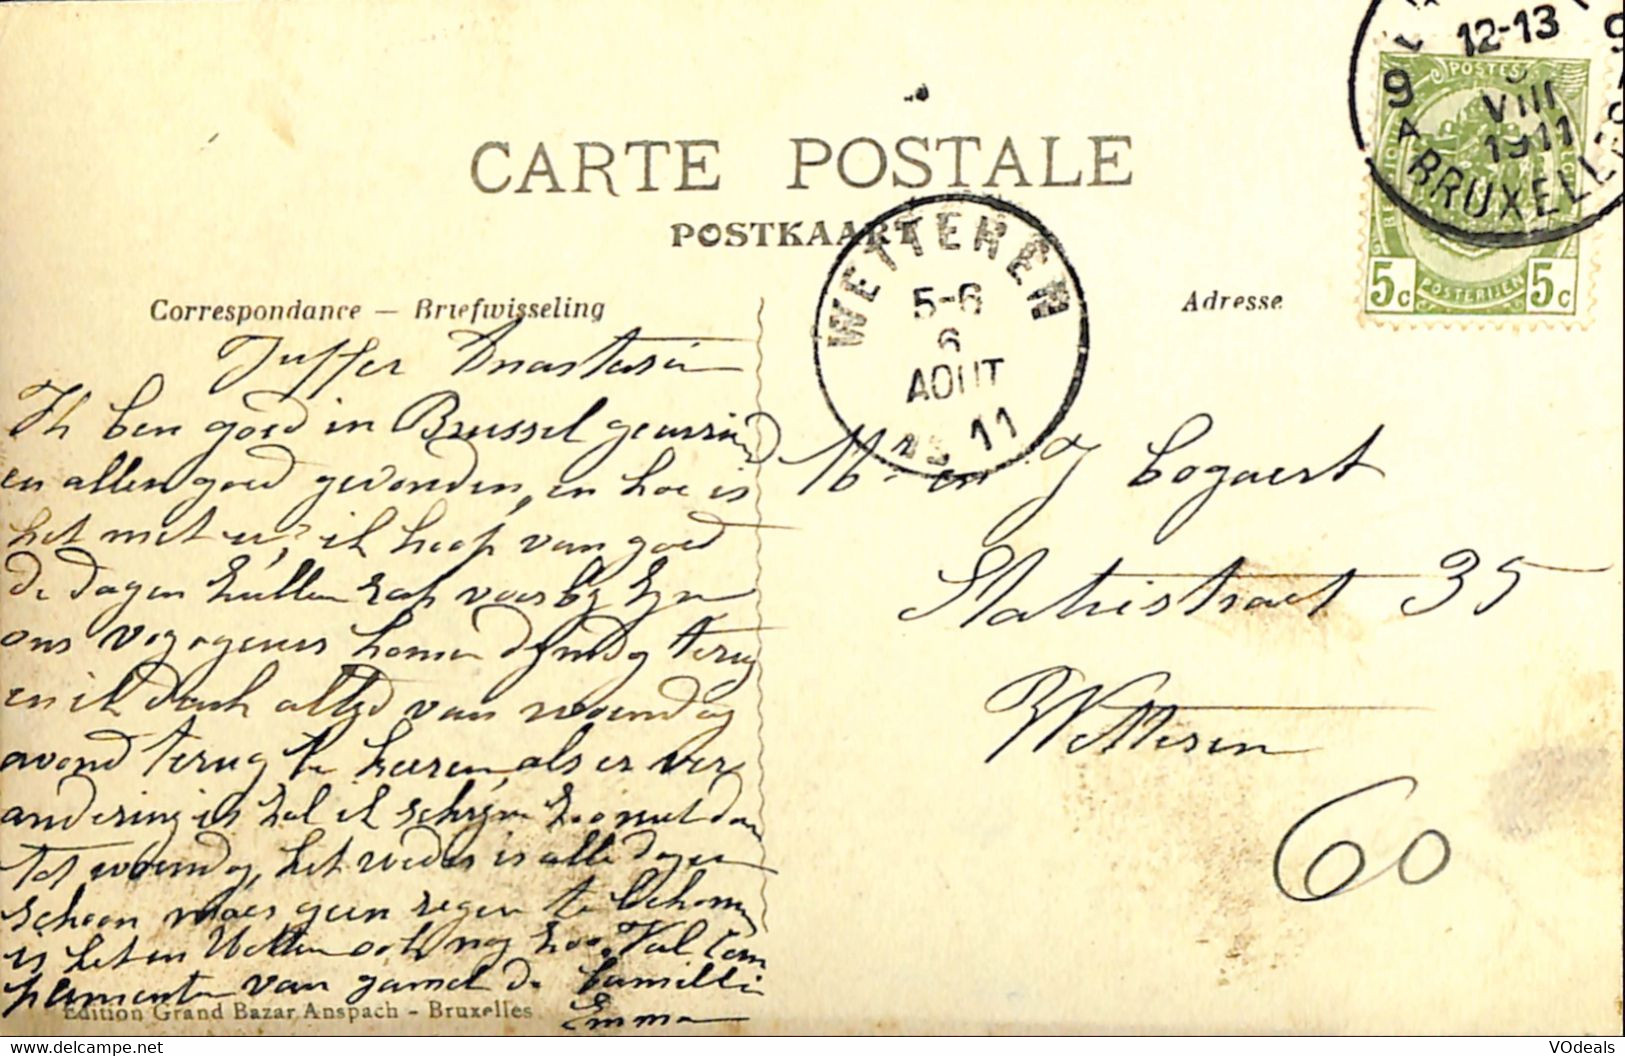 12-13
9
VIII
1911
A
BRUXELLES
POSTES
5c POSTERIJEN 5c
CARTE POSTALE
POSTKAART
WETTEREN
5-6
6
AOUT
11
Correspondance — Briefwisseling
Adresse
Juffer Anastasia
Ik ben goed in Brussel gearriv
en alles goed gevonden, en hoe is
het met u, ik hoop van goed
de dagen zullen rap voorbij zyn
ons voyageurs komen dynsdag terug
en ik denk altyd van woendag
avond terug te keeren, als er ver
andering is zal ik schryven zoo niet dan
tot woendag, het weder is alle dagen
schoon maer geen regen te bekomen
is het in Wetteren ook nog zoo. Veel com
plementen van gansch de familli
Emma
Mr en J Bogaert
Statiestraat 35
Wetteren
60
Edition Grand Bazar Anspach - Bruxelles
www.delcampe.net
VOdeals